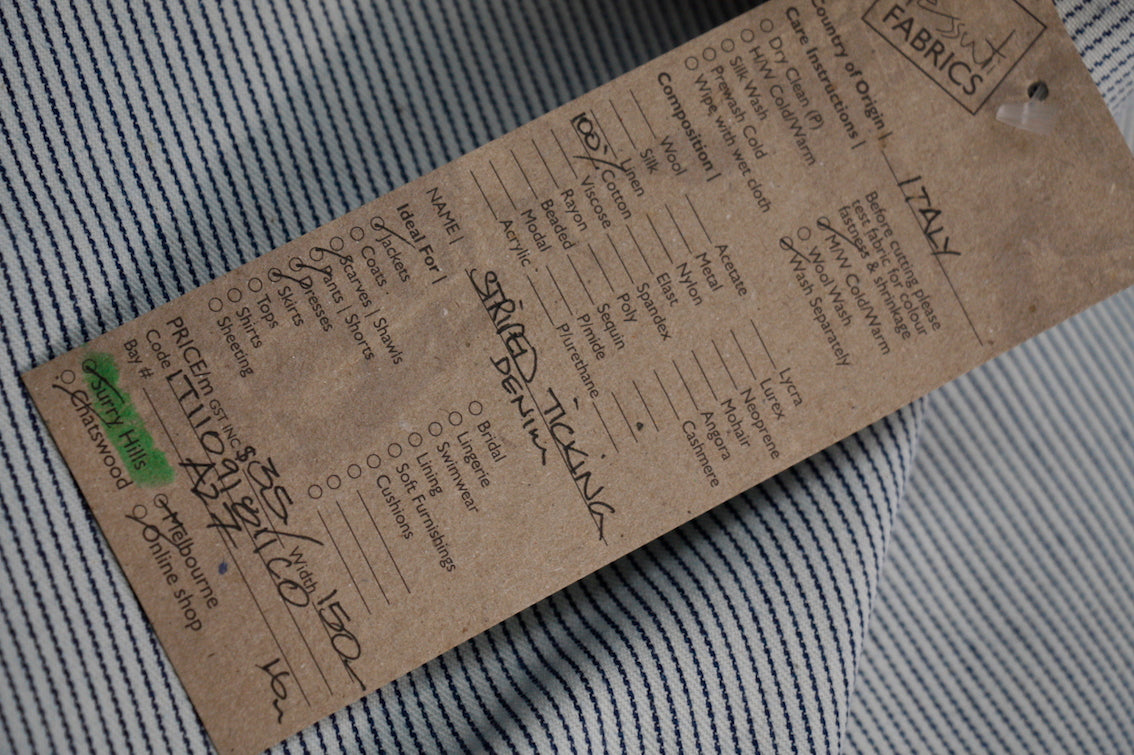 essuti
FABRICS
Country of Origin | ITALY
Care Instructions |
Dry Clean (P)
H/W Cold/Warm
Silk Wash
Prewash Cold
Wipe, with wet cloth
Before cutting please
test fabric for colour
fastness & shrinkage
M/W Cold/Warm
Wool Wash
Wash Separately
Composition |
Wool
Silk
Linen
100% Cotton
Viscose
Rayon
Beaded
Modal
Acrylic
Acetate
Metal
Nylon
Elast
Spandex
Poly
Sequin
P/mide
P/urethane
Lycra
Lurex
Neoprene
Mohair
Angora
Cashmere
NAME | STRIPED TICKING
DENIM
Ideal For |
Jackets
Coats
Scarves | Shawls
Pants | Shorts
Dresses
Skirts
Tops
Shirts
Sheeting
Bridal
Lingerie
Swimwear
Lining
Soft Furnishings
Cushions
PRICE/m GST INC $35/ Width 150
Code
Bay # A27
Surry Hills
Chatswood
Melbourne
Online shop